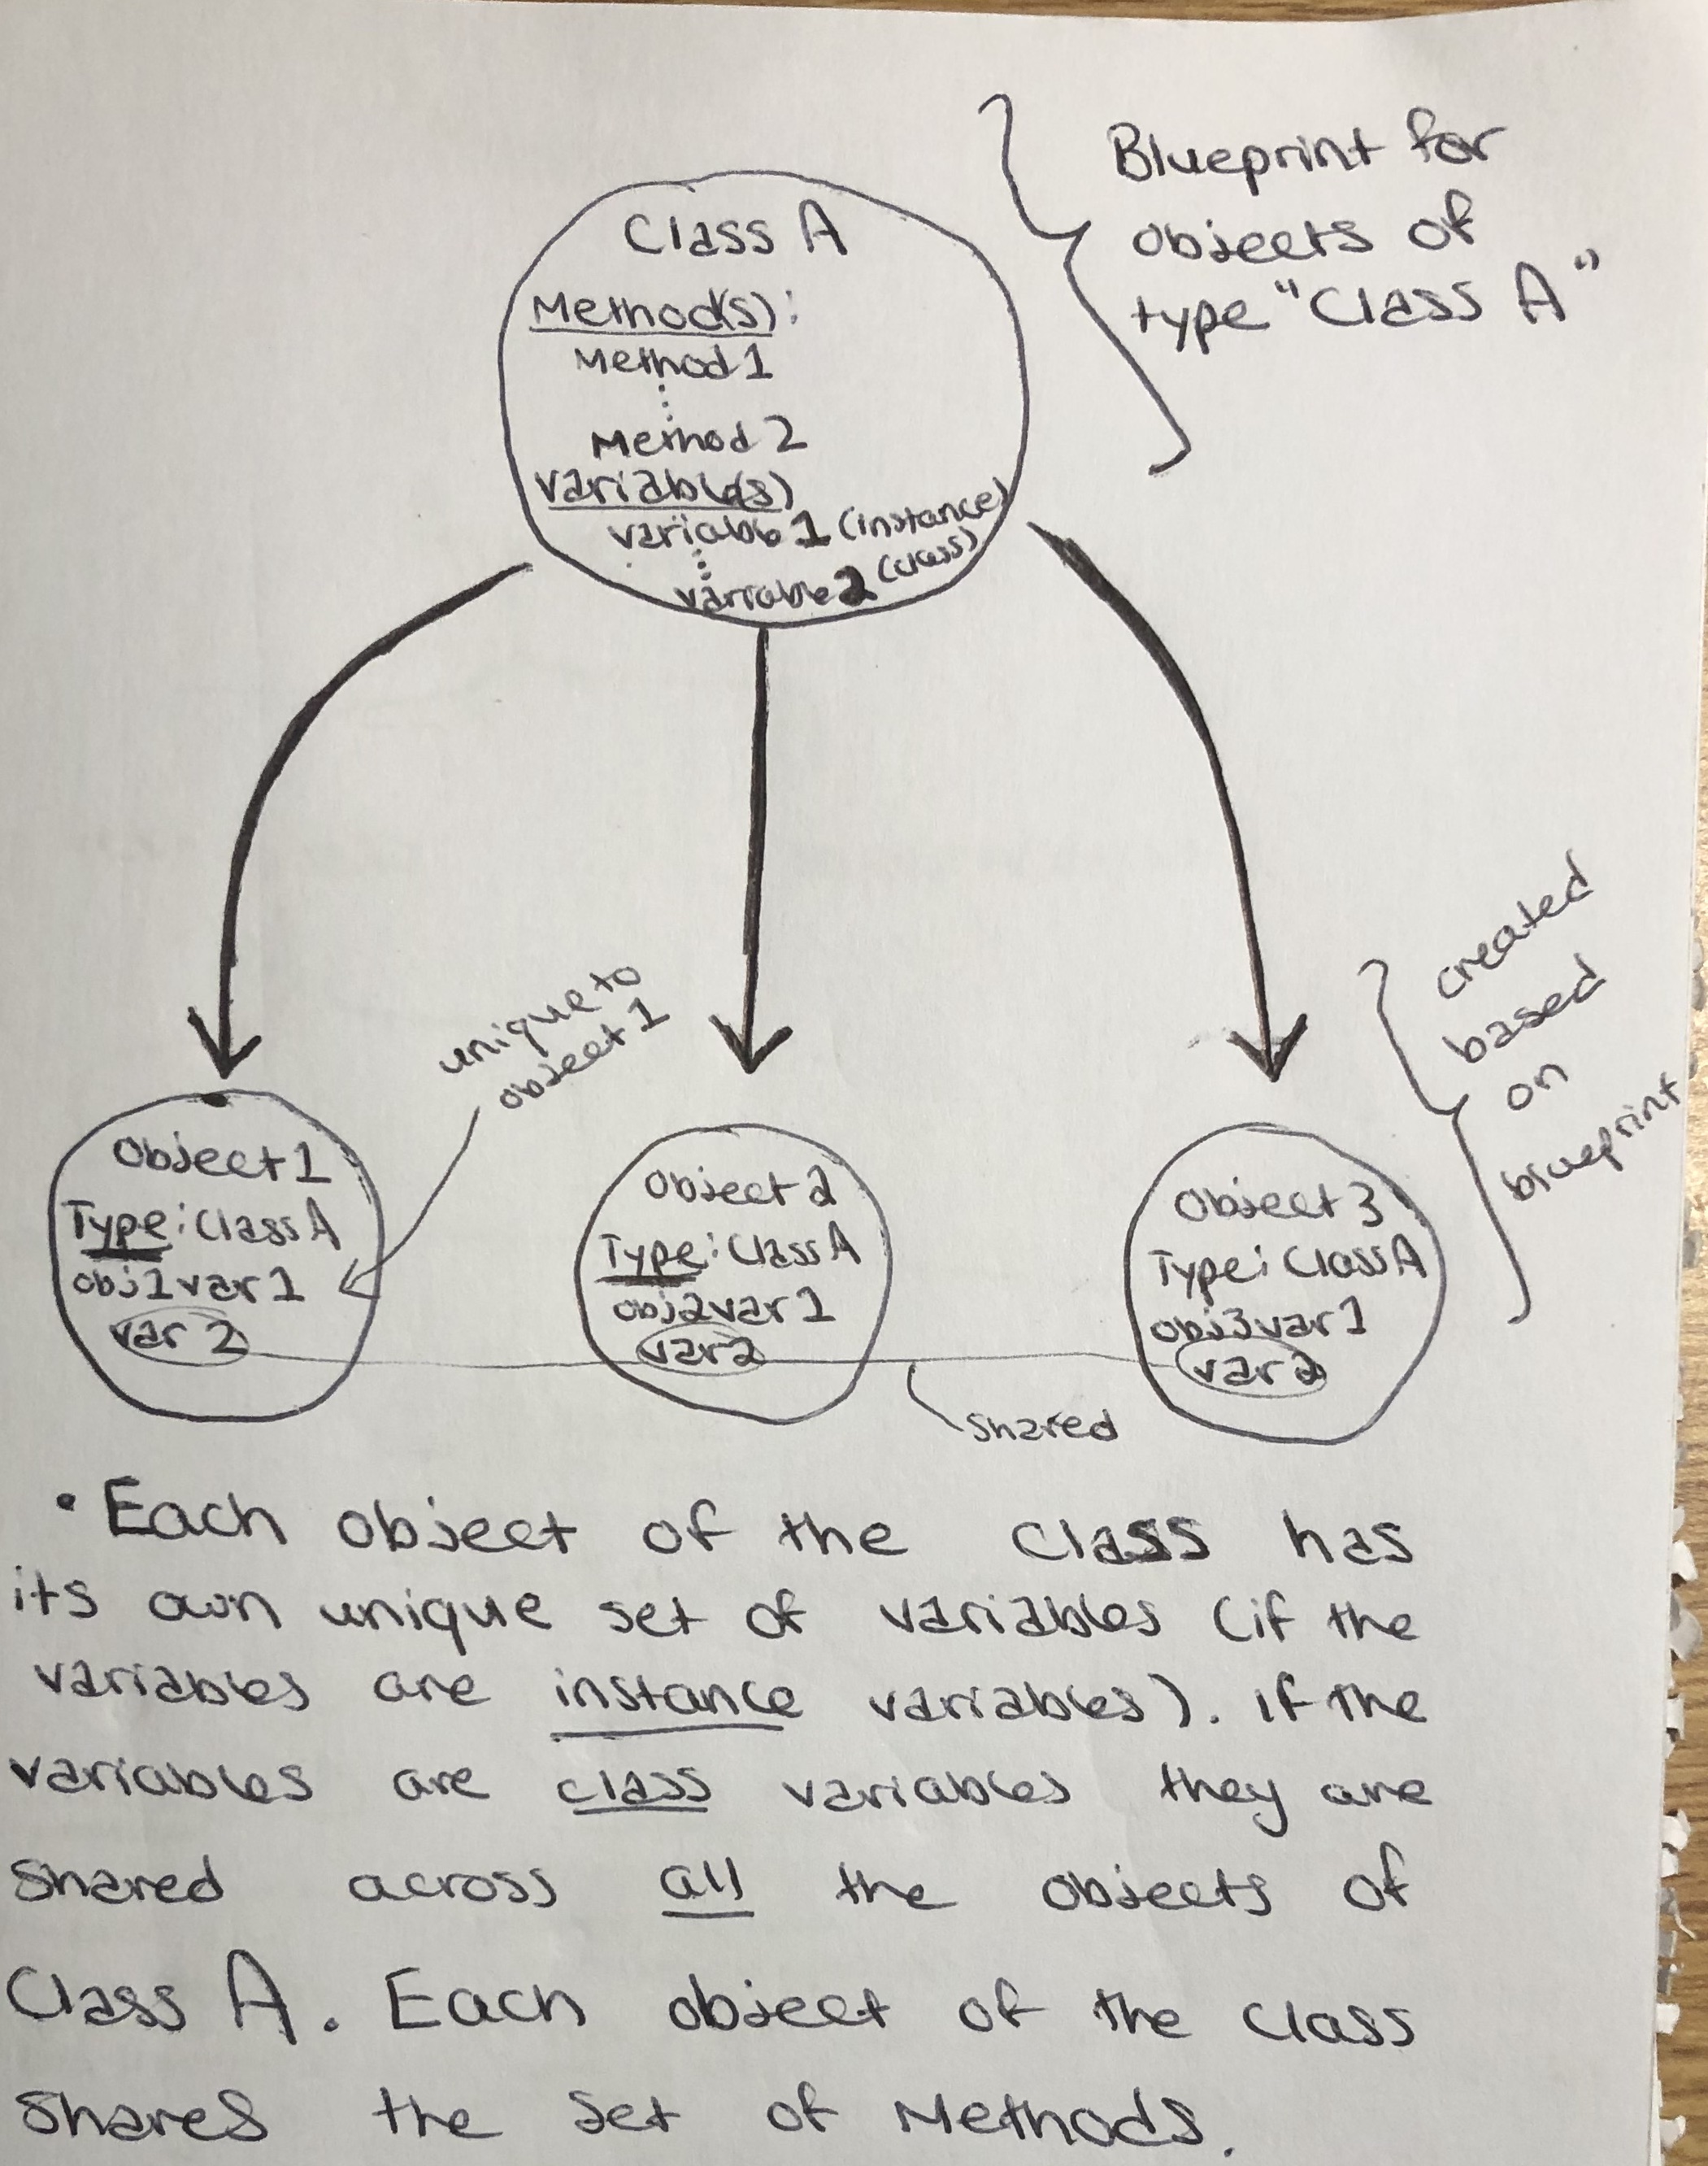 Blueprint for
objects of
type "Class A"
Class A
Method(s):
Method 1
Method 2
Variable(s)
variable 1 (instance)
variable 2 (class)
created
based
on
blueprint
unique to
object 1
Object 1
Type: Class A
obj1var1
var 2
Object 2
Type: Class A
obj2var1
var2
Object 3
Type: Class A
obj3var1
var 2
shared
• Each object of the class has
its own unique set of variables (if the
variables are instance variables). If the
variables are class variables they are
shared across all the objects of
Class A. Each object of the class
shares the set of Methods.